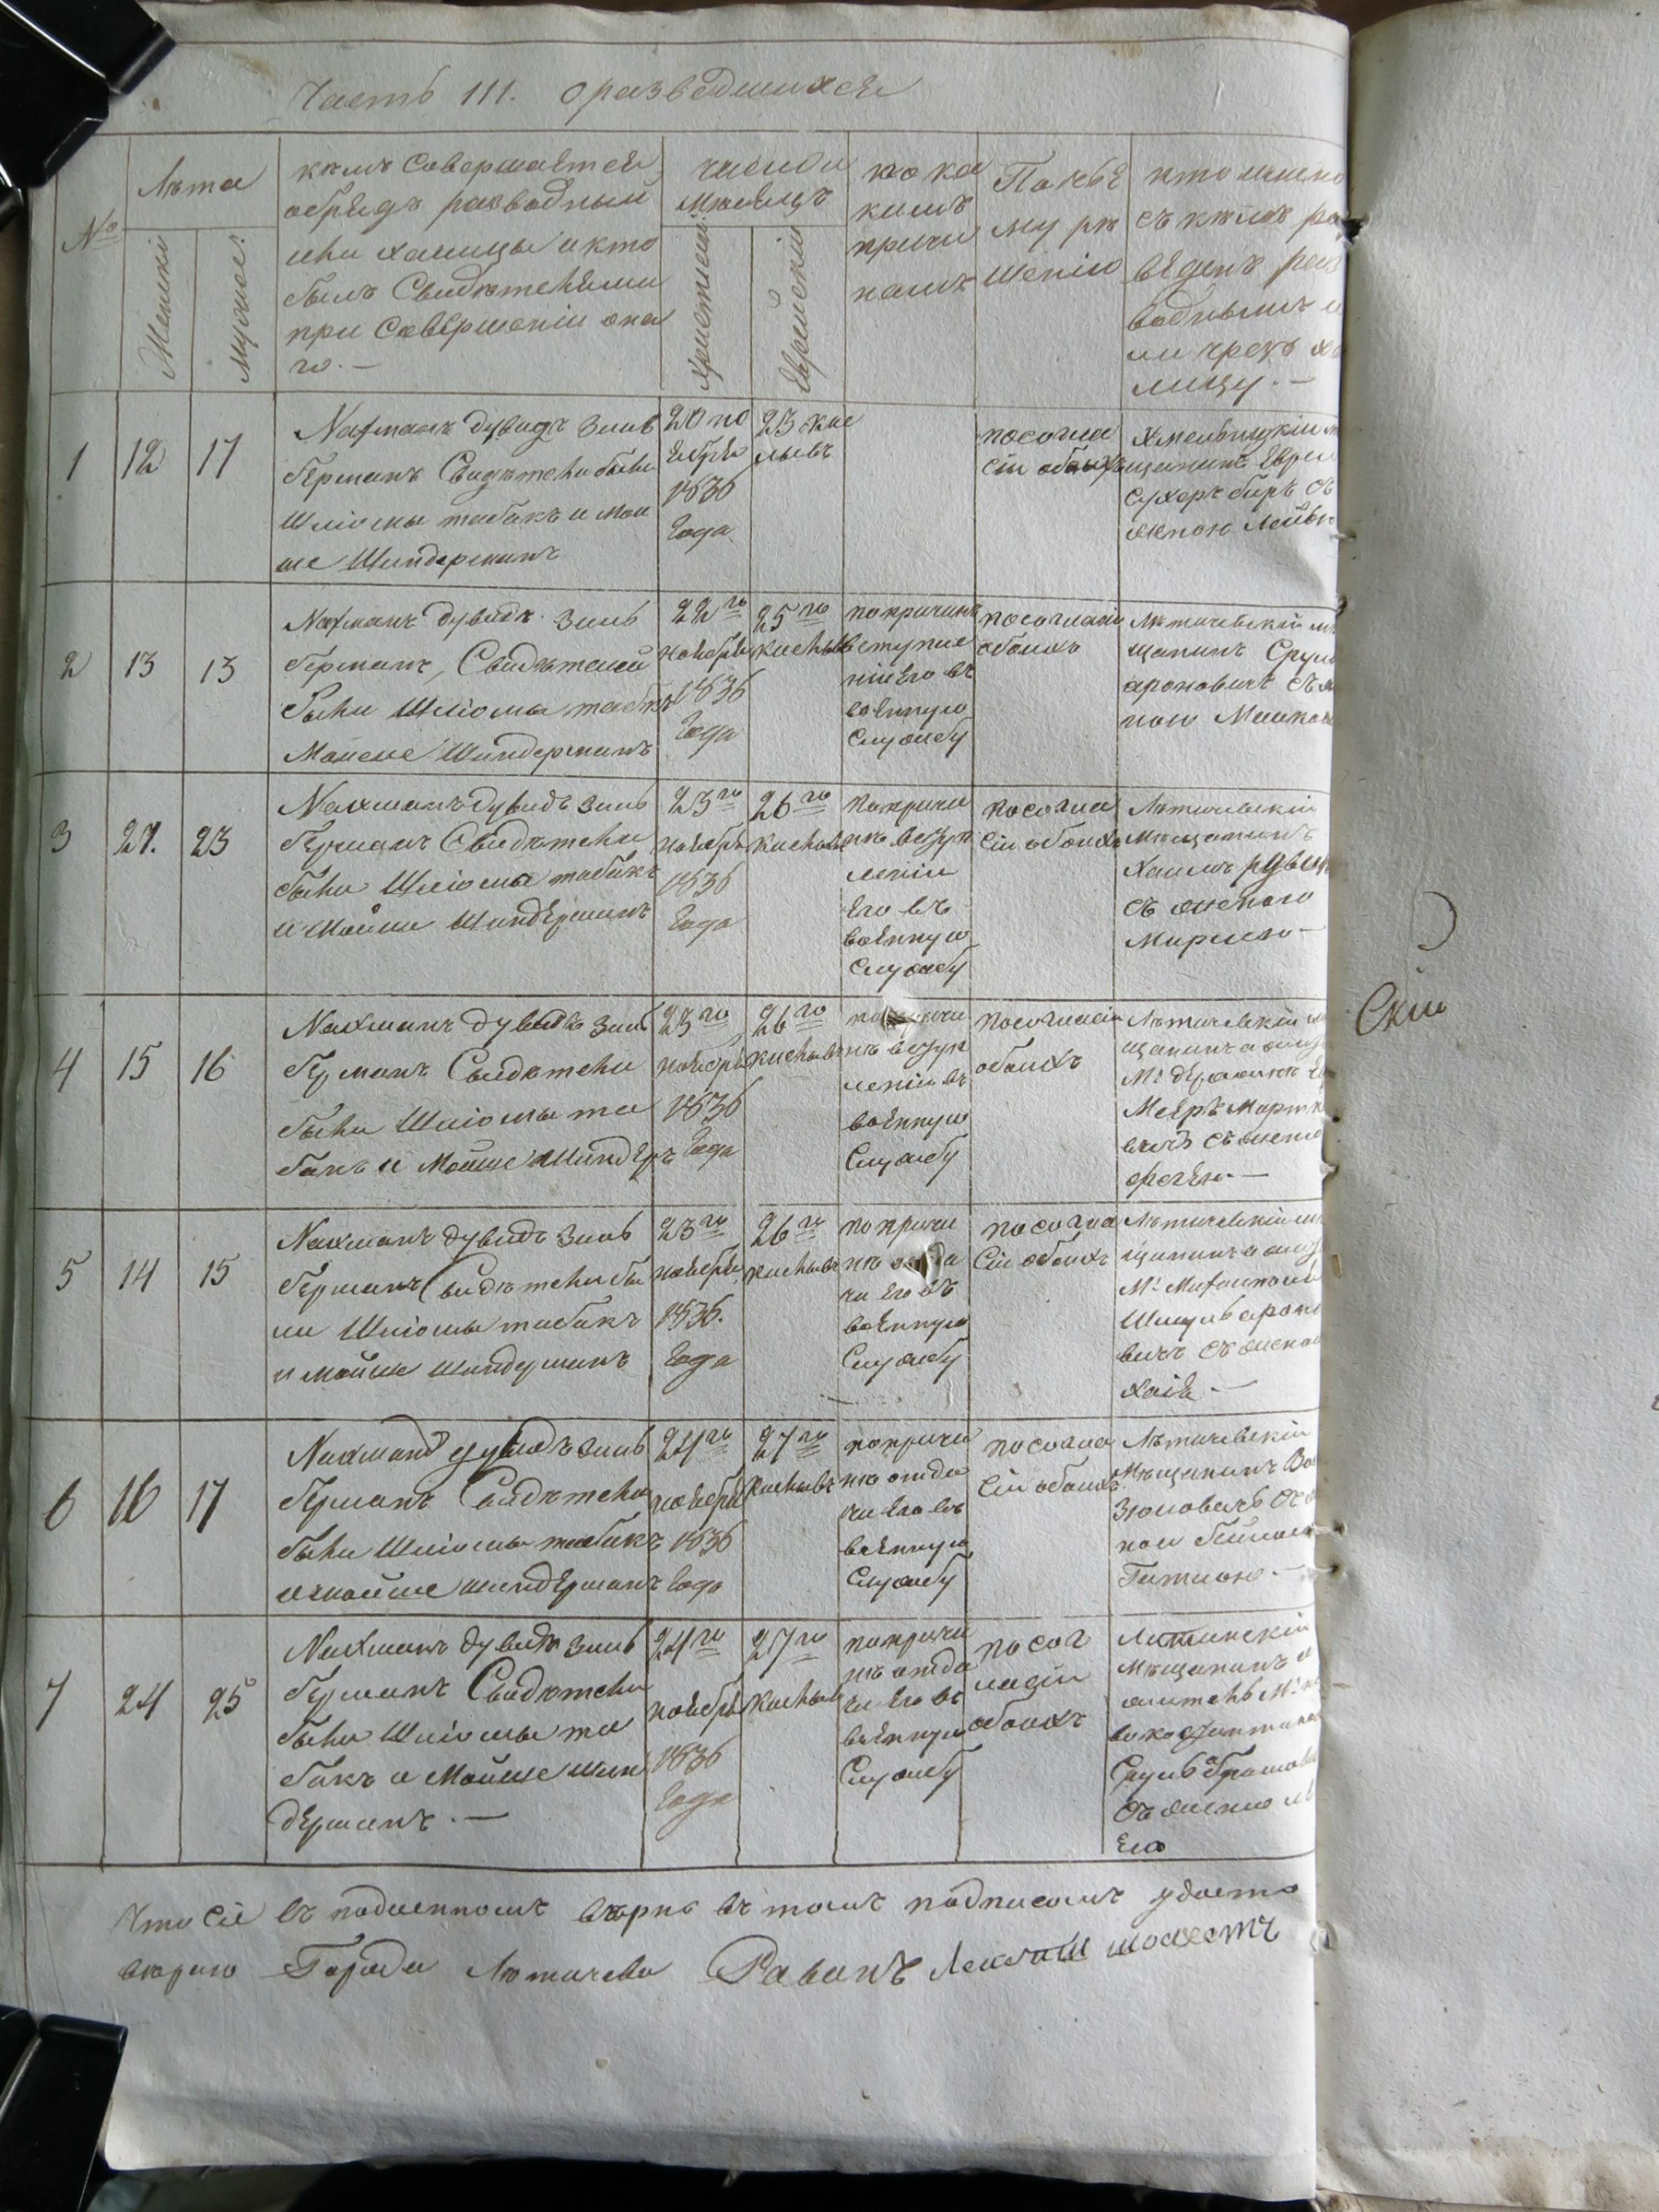 Часть III. о разведшихся
№
Лѣта
Женскіи
Мужескіе
кѣмъ Совершается
обрядъ разводный
или халицы и кто
былъ Свидѣтелями
при Совершеніи она
го. —
число и
Мѣсяцъ
Христіянскій
Еврейскій
по ка
кимъ
причи
намъ
По чьѣ
му рѣ
шенію
кто именно
съ кѣмъ ра
ведѣнъ раз
воднымъ и
ли чрезъ ха
лицу. —
1
12
17
Нахманъ дувидъ Зиль
Германъ Свидѣтели были
Шліомы табакъ и Мои
ше Шиндерманъ
20 но
ября
1836
Года
23 кис
лывъ
посогла
сіи обоихъ
Хмельницкіи м
щанинъ Евреи
Сухеръ биръ съ
женою Лейвю
2
13
13
Нахманъ дувидъ Зиль
Германъ, Свидѣтелей
Были Шліомы табакъ
Моисие Шиндерманъ
22го
ноября
1836
Года
25го
кислывъ
попричинѣ
вступле
нія его въ
военную
Службу
посогласіи
обоихъ
Лѣтичевскій мѣ
щанинъ Срул
ароновичъ съ ж
ною Малкою
3
27.
23
Нахманъ дувидъ Зиль
Германъ Свидѣтели
были Шліома табакъ
и Мойше Шиндѣрманъ
23го
ноябрь
1836
Года
26го
кислывъ
попричи
нѣ вступ
леніи
его въ
военную
Службу
посогла
сіи обоихъ
Лѣтичевскіи
Мѣщанинъ
Хаимъ
съ женою
Мирлею —
4
15
16
Нахманъ дувидъ Зиль
Германъ Свидѣтели
были Шліомы та
бакъ и Мойше Шиндѣръ
23го
ноября
1836
Года
26го
кислывъ
попричи
нѣ вступ
леніи въ
военную
Службу
посогласіи
обоихъ
Лѣтичевскій м
щанинъ а жи
Мѣ
Меѣръ Мортк
вичъ съ жено
фегею. —
5
14
15
Нахманъ дувидъ Зиль
Германъ Свидѣтели бы
ли Шліомы табакъ
и Мойше Шиндерманъ
23го
ноября
1836.
Года
26го
кислывъ
попричи
нѣ отда
чи его въ
военную
Службу
посогла
сіи обоихъ
Лѣтичевскіи мѣ
щанинъ а жи
Мѣ
Шмуль арон
вичъ съ женою
хаіѣ —
6
16
17
Нахманъ дувидъ Зиль
Германъ Свидѣтели
были Шліомы табакъ
и мойше шиндѣрманъ
24го
ноября
1836
Года
27го
кислывъ
попричи
нѣ отда
чи его въ
военную
Службу
посогла
сіи обоихъ
Лѣтичевскій
Мѣщанинъ
съ
Гитлею. —
7
24
25
Нахманъ дувидъ Зиль
Германъ Свидѣтели
были Шліомы та
бакъ и Мойше Шин
дѣрманъ. —
24го
ноябрь
1836
Года
27го
кислывъ
попричи
нѣ отда
чи его въ
военную
Службу
по сог
ласіи
обоихъ
Литинскій
Мѣщанинъ а
житель Мѣ
Сруль абрамови
съ женою
Что сіе въ подленномъ вѣрно въ томъ подписомъ удосто
вѣряю Города Лѣтичева Равинъ